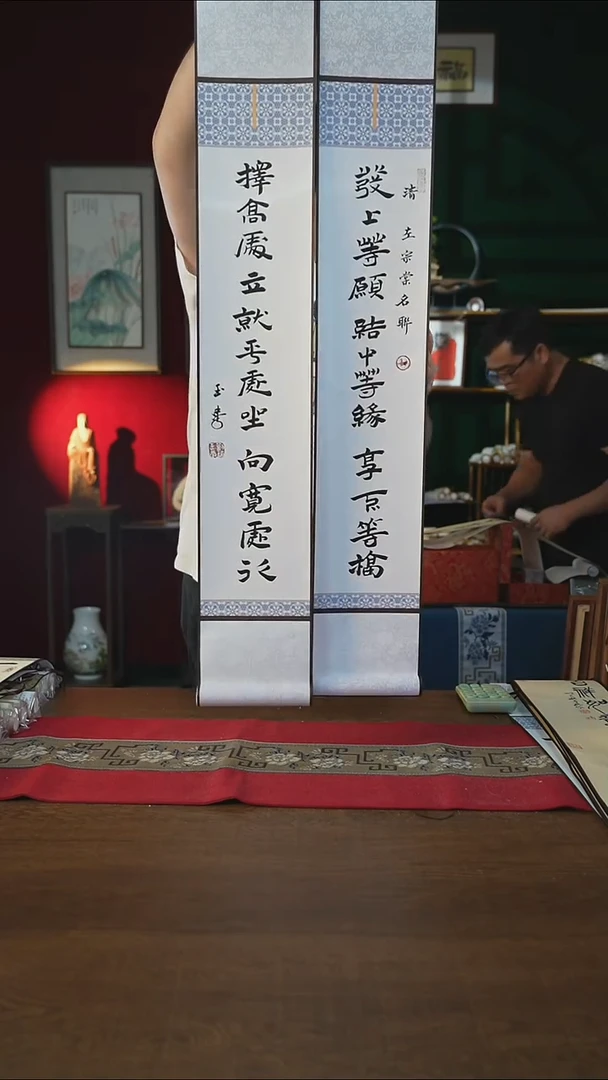 清 左宗棠名聯
發上等願 結中等緣 享下等福
擇高處立 就平處坐 向寬處行